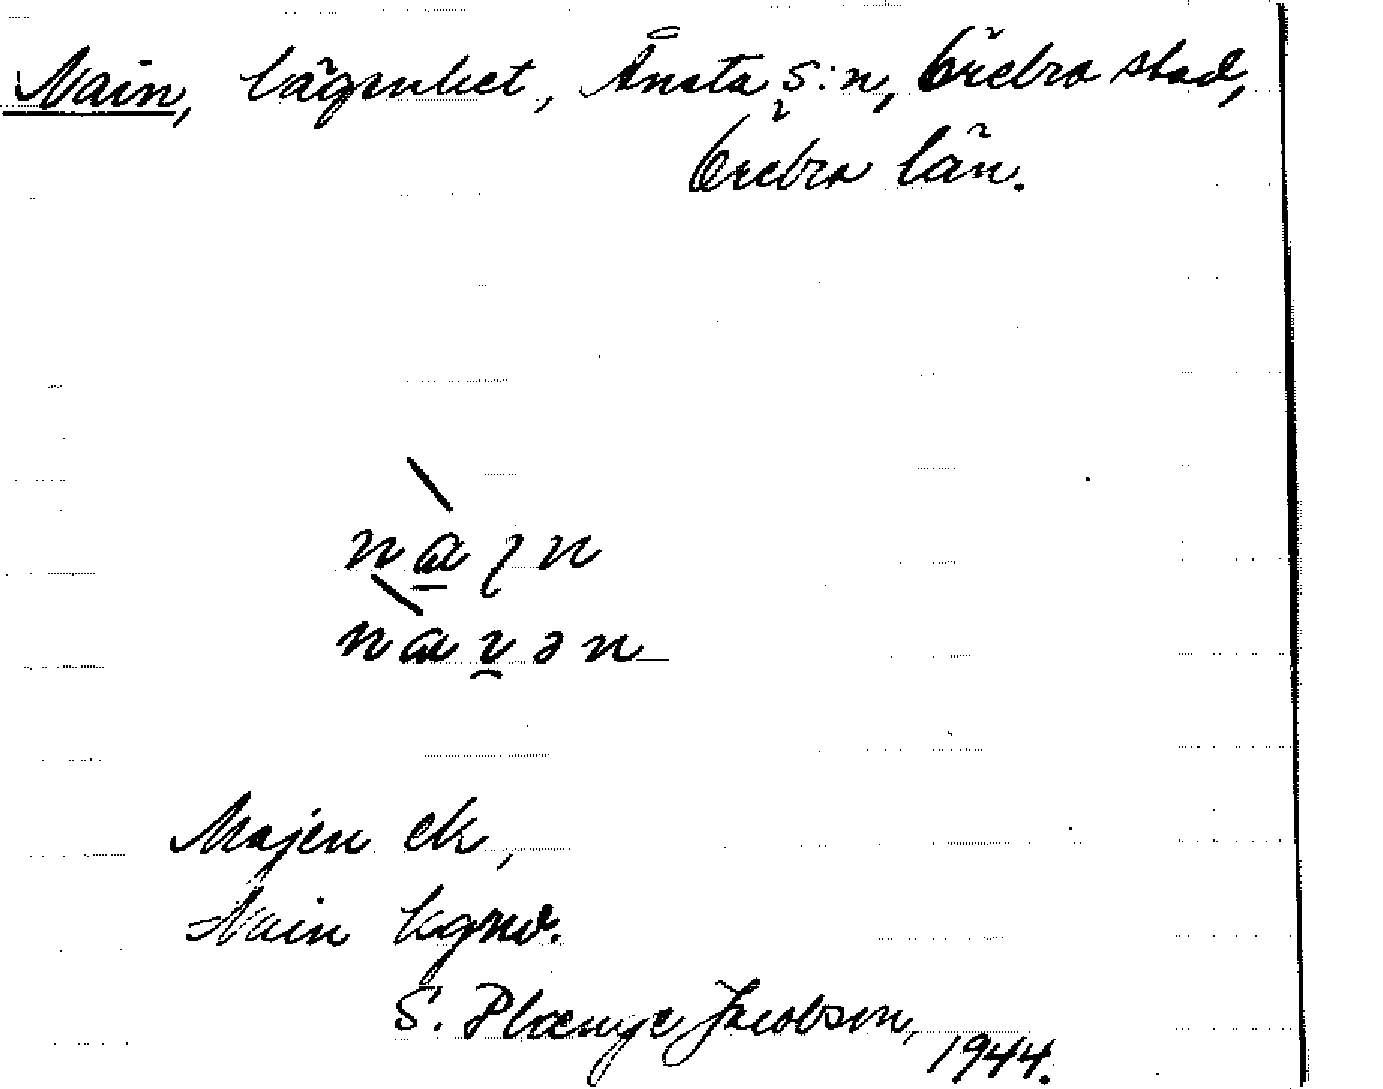 Nain, lägenhet, Ånsta s:n, Örebro stad,
Örebro län.
nàɩn
nàɩ̯ən
Majen ek,
Nain
S. Plænge Jacobson,
1944.